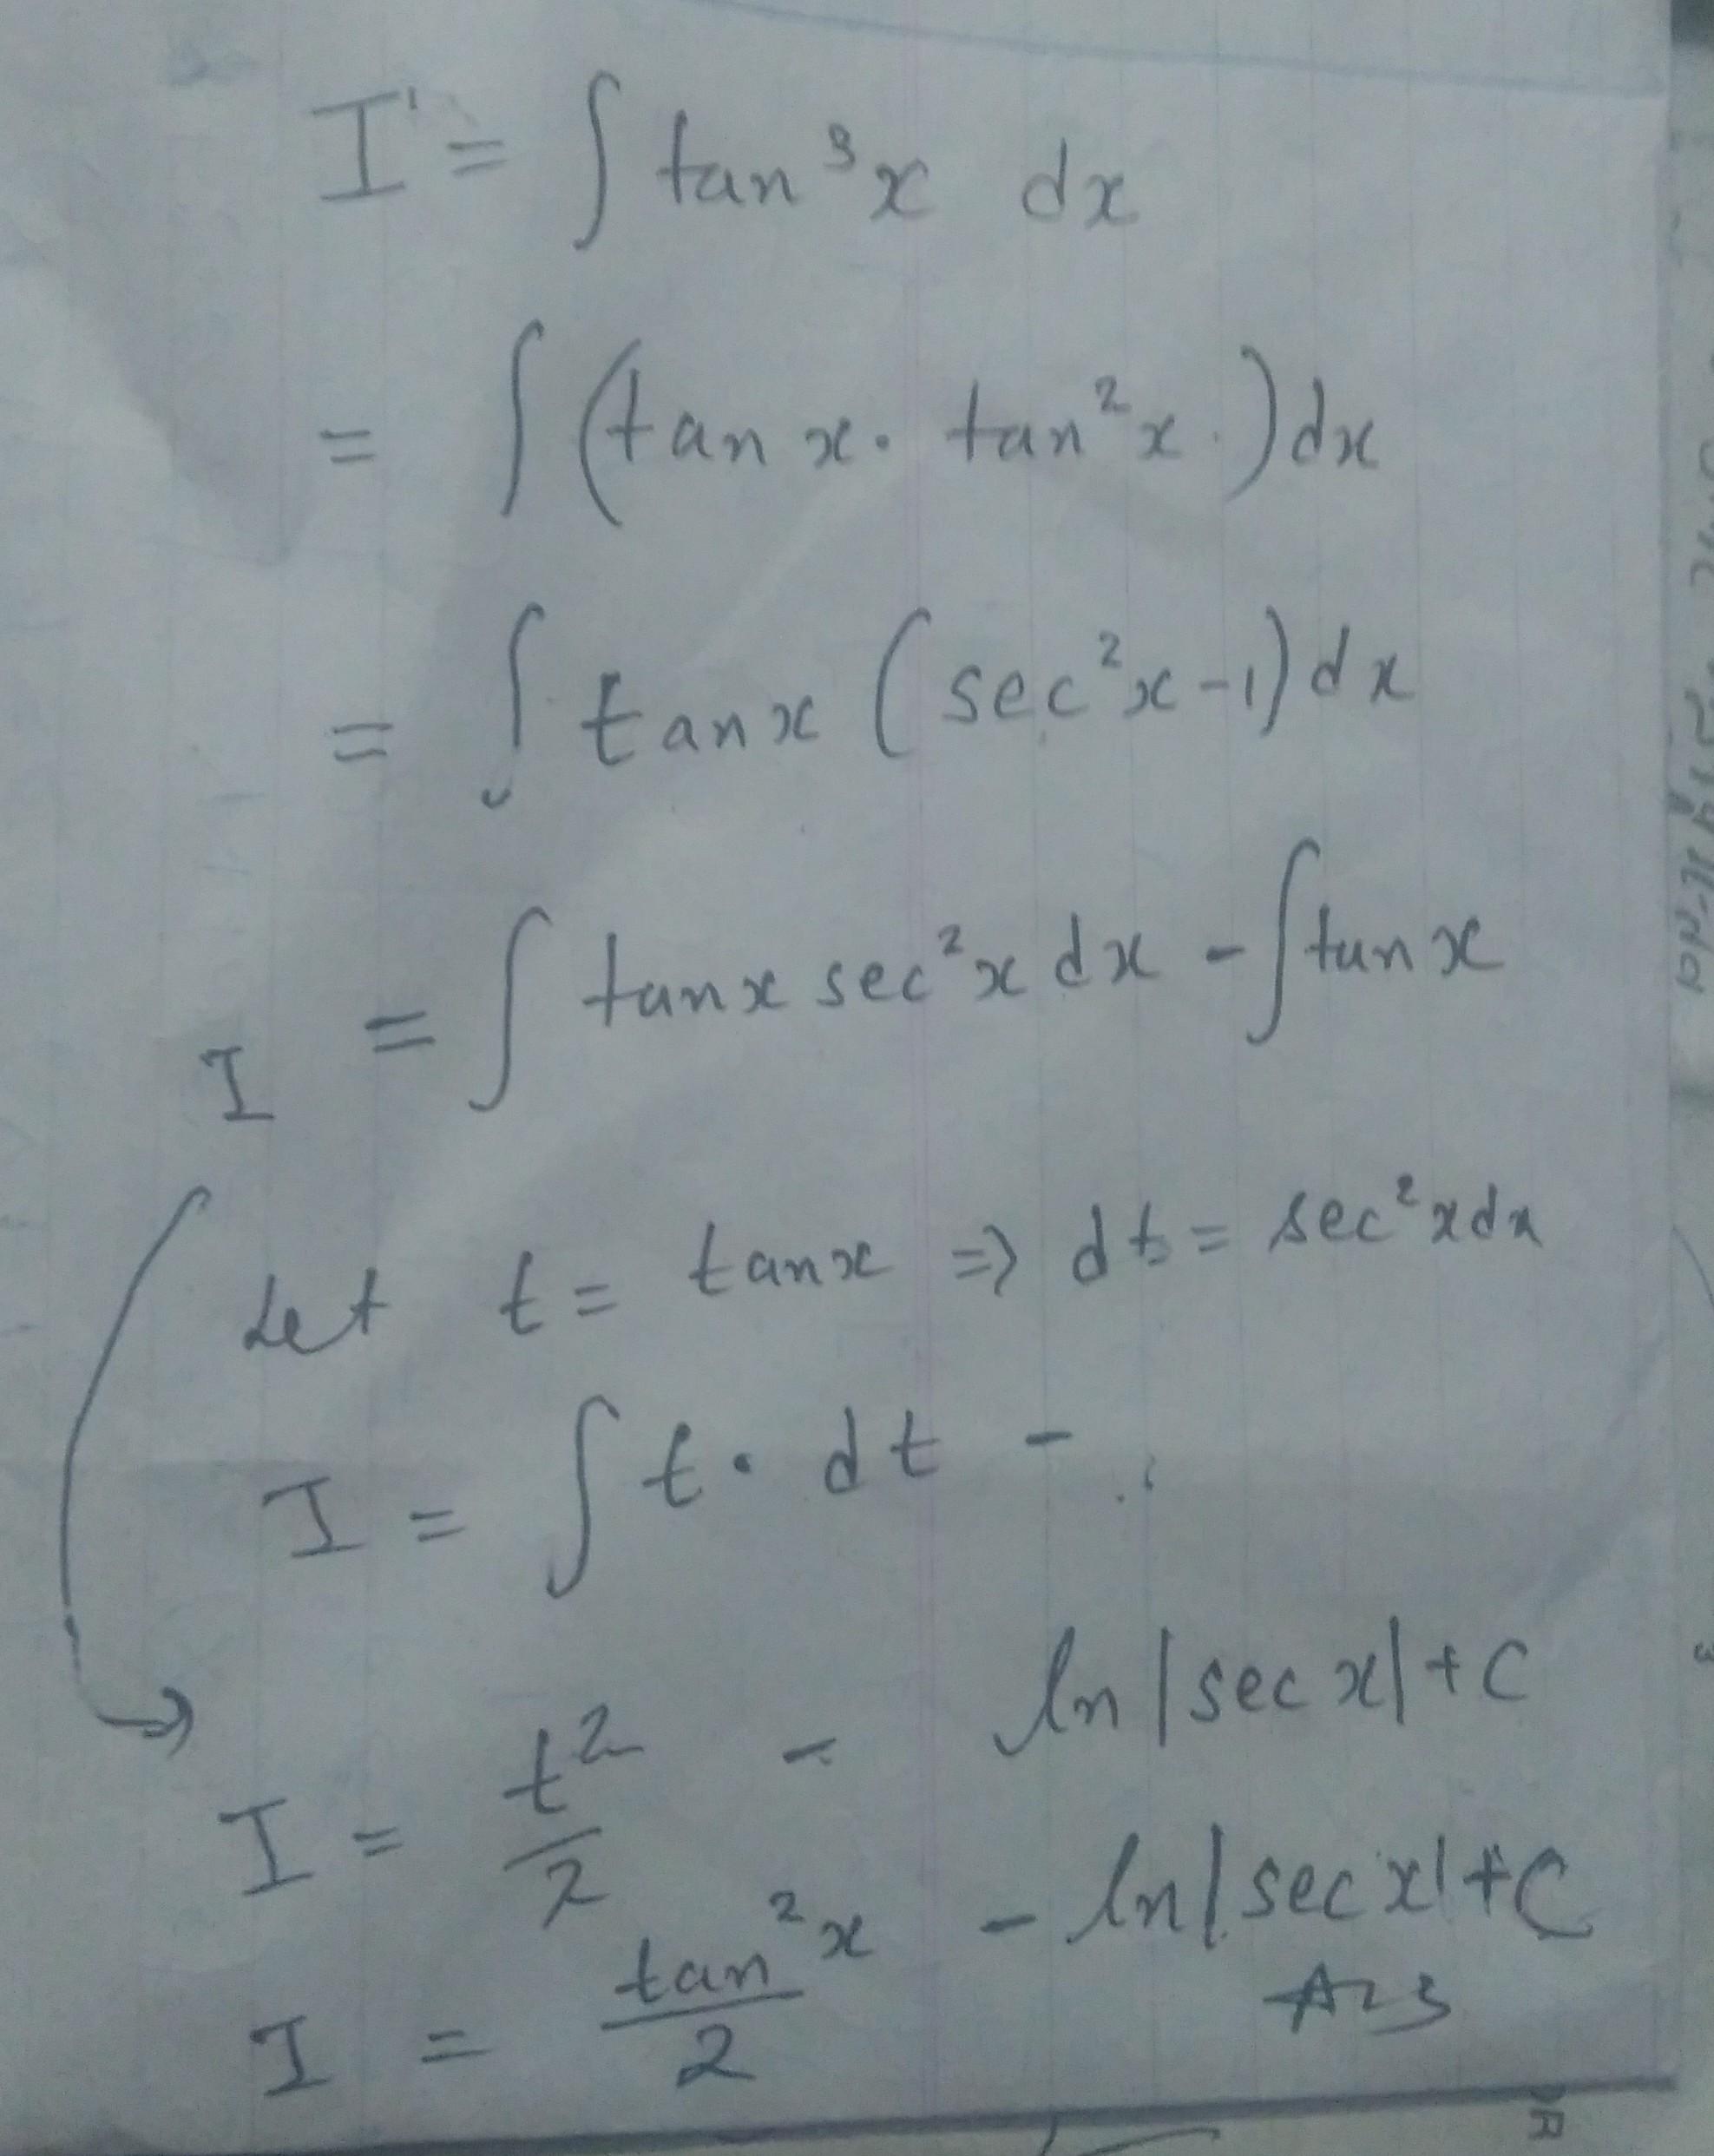 I = ∫ tan³x dx
= ∫ (tan x. tan²x.) dx
= ∫ tanx (sec²x-1) dx
I = ∫ tanx sec²x dx - ∫ tan x
Let t = tanx => dt = sec²x dx
I = ∫ t. dt -
I = t²/2 - ln|sec x|+C
I = tan²x/2 - ln|sec x|+C
Ans